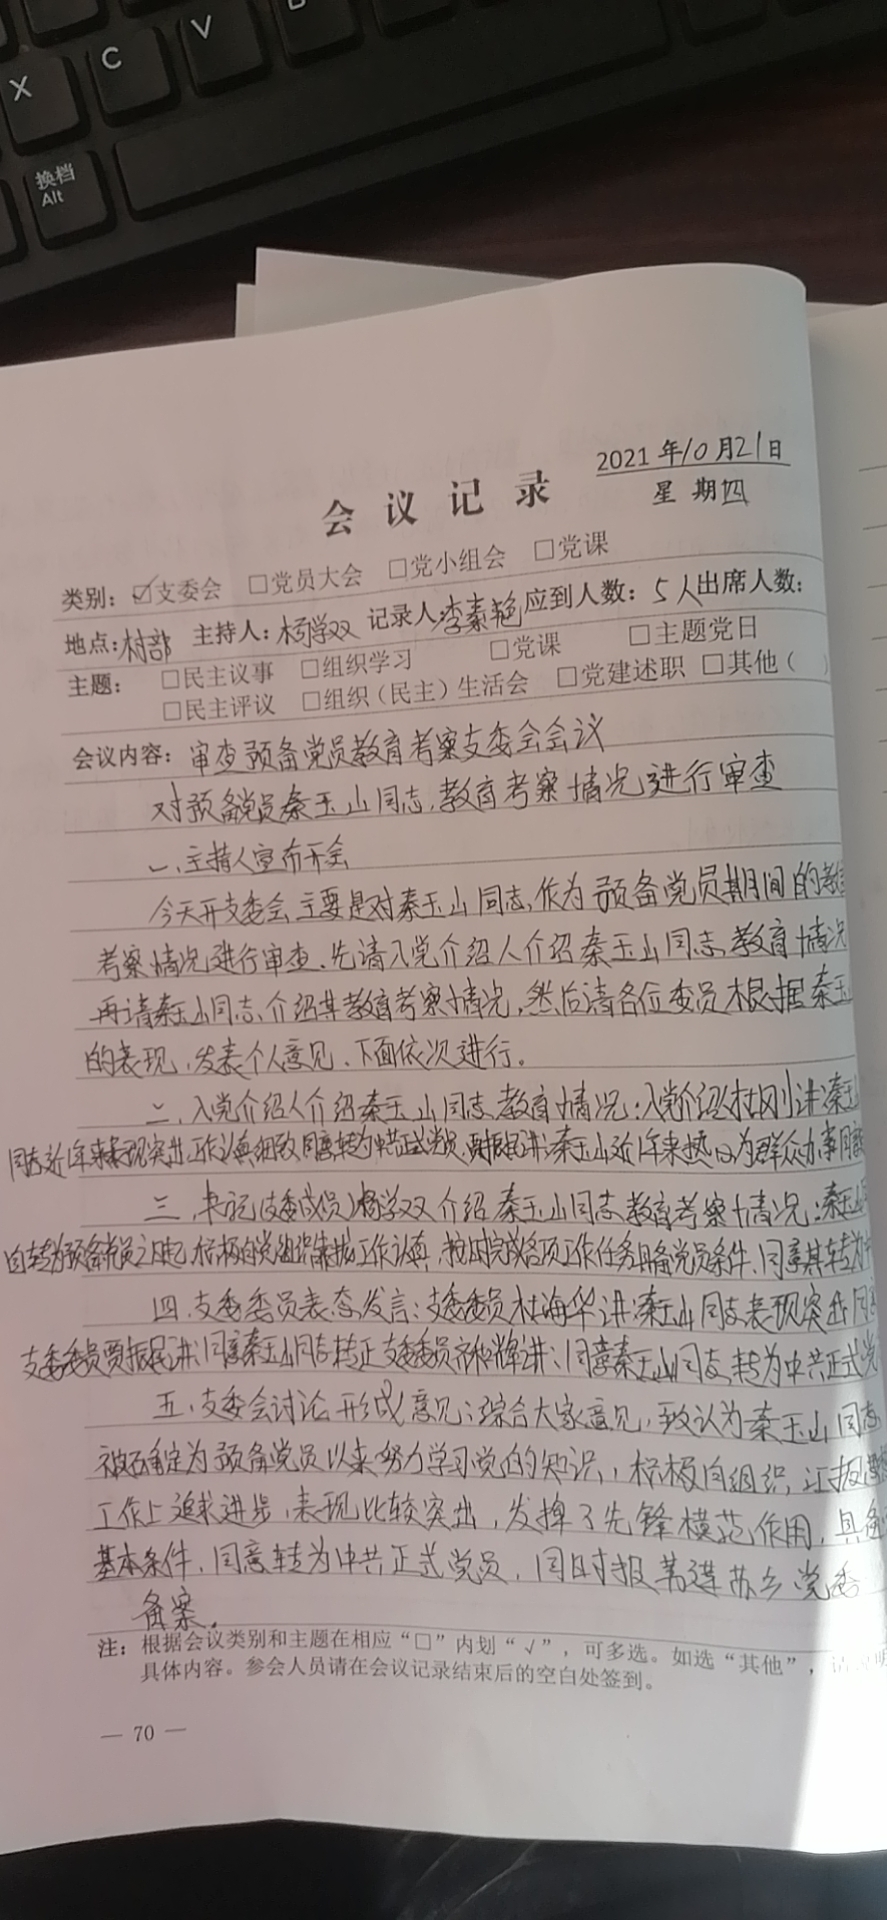 X
C
V
B
换档
Alt
2021年10月21日
星期四
会议记录
类别：☑支委会 □党员大会 □党小组会 □党课
地点：村部 主持人：杨学双 记录人：李素艳 应到人数：5人 出席人数：
主题： □民主议事 □组织学习 □党课 □主题党日
□民主评议 □组织（民主）生活会 □党建述职 □其他（ ）
会议内容：审查预备党员教育考察支委会会议
对预备党员秦玉山同志，教育考察情况进行审查
一、主持人宣布开会
今天开支委会，主要是对秦玉山同志，作为预备党员期间的教
考察情况进行审查、先请入党介绍人介绍秦玉山同志教育情况
再请秦玉山同志介绍其教育考察情况，然后请各位委员根据秦玉
的表现，发表个人意见，下面依次进行。
二、入党介绍人介绍秦玉山同志教育情况：入党介绍人杜刚讲：秦玉山
同志近1年来表现突出工作认真细致同意转为中共正式党员，贾振民讲：秦玉山近1年来热心为群众办事同意
三、书记（支委成员）杨学双介绍秦玉山同志教育考察情况：秦玉山
自转为预备党员之日起，积极向党组织靠拢工作认真，按时完成各项工作任务具备党员条件、同意其转为中
四、支委委员表态发言：支委委员杜海华讲：秦玉山同志表现突出同意
支委委员贾振民讲：同意秦玉山同志转正支委委员讲：同意秦玉山同志转为中共正式党
五、支委会讨论形成意见：综合大家意见，一致认为秦玉山同志
被确定为预备党员以来努力学习党的知识，积极向组织，汇报
工作上追求进步，表现比较突出，发挥了先锋模范作用，具备
基本条件、同意转为中共正式党员，同时报苏乡党委
备案。
注：根据会议类别和主题在相应“□”内划“√”，可多选。如选“其他”，请说明
具体内容。参会人员请在会议记录结束后的空白处签到。
— 70 —